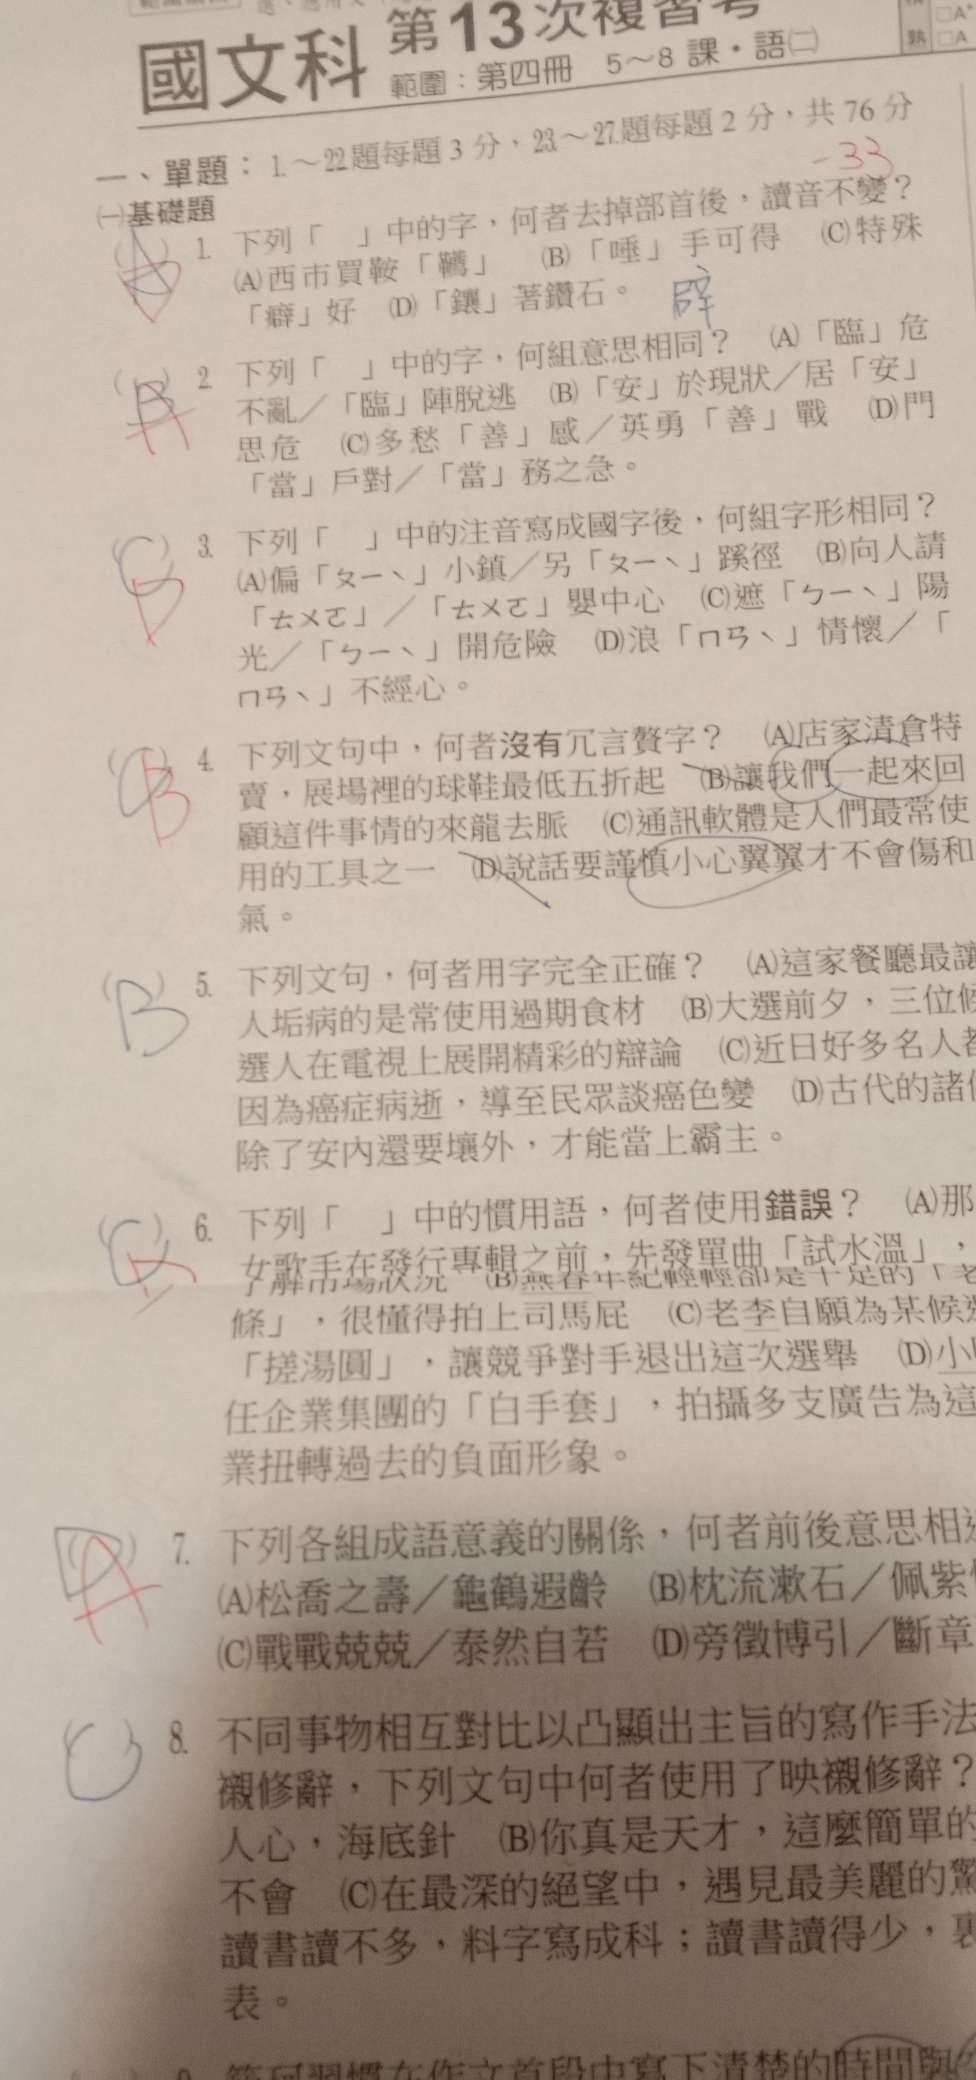 國文科 第13次複習考
範圍：第四冊 5～8 課・語㈡
熟 □A
一、單題：1.～22.題每題 3 分、23.～27.題每題 2 分，共 76 分
-33
㈠基礎題
1. 下列「 」中的字，何者去掉部首後，讀音不變？
(A)西市買鞍「韉」 (B)「唾」手可得 (C)特殊
「癖」好 (D)「鑲」著鑽石。
辟
2. 下列「 」中的字，何組意思相同？ (A)「臨」危
不亂／「臨」陣脫逃 (B)「安」於現狀／居「安」
思危 (C)多愁「善」感／英勇「善」戰 (D)門
「當」戶對／「當」務之急。
C D
3. 下列「 」中的注音寫成國字後，何組字形相同？
(A)偏「ㄆㄧˋ」小鎮／另「ㄆㄧˋ」蹊徑 (B)向人請
「ㄊㄨㄛ」／「ㄊㄨㄛ」嬰中心 (C)遮「ㄅㄧˋ」陽
光／「ㄅㄧˋ」開危險 (D)浪「ㄇㄢˋ」情懷／「
ㄇㄢˋ」不經心。
B
4. 下列文句中，何者沒有冗言贅字？ (A)店家清倉特
賣，展場裡的球鞋最低五折起 (B)讓我們一起來回
顧這件事情的來龍去脈 (C)通訊軟體是人們最常使
用的工具之一 (D)說話要謹慎小心翼翼才不會傷和
氣。
(B) 5. 下列文句，何者用字完全正確？ (A)這家餐廳最讓
人垢病的是常使用過期食材 (B)大選前夕，三位候
選人在電視上展開精彩的辯論 (C)近日好多名人都
因為癌症病逝，導至民眾談癌色變 (D)古代的諸侯
除了安內還要壤外，才能當上霸主。
6. 下列「 」中的慣用語，何者使用錯誤？ (A)那
女歌手在發行專輯之前，先發單曲「試水溫」，
了解市場狀況 (B)無春年紀輕輕卻是十足的「老
條」，很懂得拍上司馬屁 (C)老李自願為某候選
「搓湯圓」，讓競爭對手退出這次選舉 (D)小
任企業集團的「白手套」，拍攝多支廣告為這
業扭轉過去的負面形象。
A
7. 下列各組成語意義的關係，何者前後意思相
(A)松喬之壽／龜鶴遐齡 (B)枕流漱石／佩紫
(C)戰戰兢兢／泰然自若 (D)旁徵博引／斷章
8. 不同事物相互對比以凸顯出主旨的寫作手法
襯修辭，下列文句中何者使用了映襯修辭？
人心，海底針 (B)你真是天才，這麼簡單的
不會 (C)在最深的絕望中，遇見最美麗的驚
讀書讀不多，料字寫成科；讀書讀得少，裏
表。